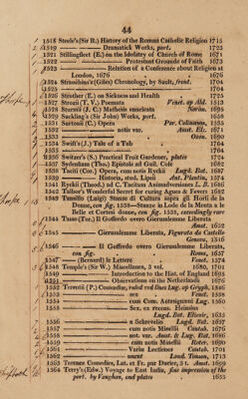 44
1518 Steele's (Sir R.) History of the Roman Catholic Religion 1715
1519 —— Dramatick Works, port. 1723
1521 Stillingfleet (E.) on the Idolatry of Church of Rome 1671
1522 —— Protestant Grounds of Faith 1673
1523 —— Relation of a Conference about Religion at
London, 1676 1676
1524 (Giles) Chronology, by Sault, front. 1704
1704
1526 Strother (E.) on Sickness and Health 1725
1527 Strozii (T. V.) Poemata Venet. ap Ald. 1513
1528 Sturmii (J. C.) Mathesis enucleata 1695
1529 Suckling's (Sir John) Works, port. 1658
1531 Suetonii (C.) Opera Par. Colinæum, 1535
1532 —— notis var. Amst. Elz. 1671
1533 Oxon. 1690
1534 Swift's (J.) Tale of a Tub 1704
1704
Switzer's (S.) Practical Fruit Gardener, plates 1724
1537 Sydenham (Tho.) Epistola ad Guil. Cole
1538 Taciti (Cor.) Opera, cum notis Ryckii Lugd. Bat. 1687
1539 —— Historia, Ant. Plantin. 1574
1541 Ryckii (Theod.) ad C. Tacitum Animadversiones L. B. 1686
1542 Talbor's Wonderful Secret for curing Agues & Fevers 1682
1543 Tansillo (Luigi) Stanze di Cultura sopra gli Horti de la
Donne, con fig. 1538—Stanze in Lode de la Menta e le
Belle et Cortesi donne, con fig. 1538, exceedingly rare
1544 Tasso (Tor.) Il Goffredo overo Gierusalemme Liberata
Amst. 1652
1545 —— Gierusalemme Liberata, Figurata da Castello
Genova, 1316
1546 —— Il Goffredo overo Gierusalemme Liberata,
con fig. Roma, 1657
1547 —— (Bernard) le Lettere Venet. 1574
1548 Temple's (Sir W.) Miscellanea, 3 vol. 1680, 1701
1549 —— Introduction to the Hist. of England 1695
Observations on the Netherlands 1676
1552 Terentii (P.) Comœdiæ, ruled red lines Lug. ap Gryph. 1546
1553 —— sex Venet. 1558
cum Com. Antesignani Lug. 1560
—— Sex. ex recens. Heinsiana
Lugd. Bat. Elzevir, 1635
1556 —— a Schrevelio Lugd. Bat. 1657
1557 —— cum notis Minelli Contab. 1676
1558 —— not. var. Amst. & Lug. Bat. 1686
1559 —— cum notis Minelii Roter. 1680
1561 —— Variæ Lectiones Contab. 1701
1562 —— Lond. Tonson, 1713
1563 Terence Comedies, Lat. et Fr. par Dacier, 3 t. Amst. 1699
1564 Terry's (Edw.) Voyage to East India, fine impression of the
port. by Vaughan, and plates 1655